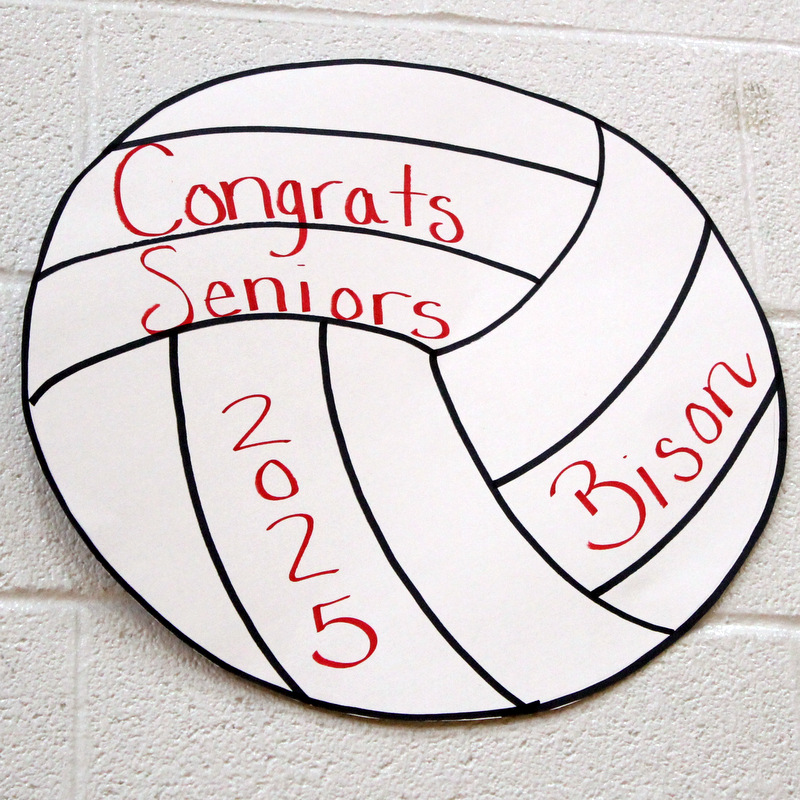 Congrats
Seniors
2025
Bison